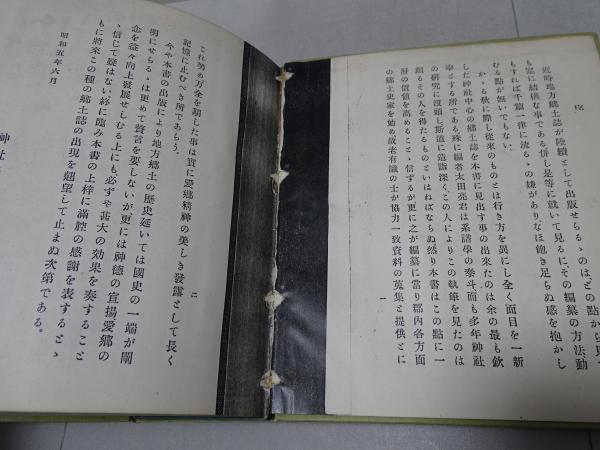 序
近時地方鄕土誌が陸續として出版せらるゝのは、どの點から見
も寔に結構な事である併し是等に就いて見るにその編纂の方法動
もすれば千篇一律に流るゝの嫌があり、なほ飽き足らぬ感を抱かし
むる點が無いでもない。
かゝる秋に際し從來のものとは行き方を異にし全く面目を一新
した神社中心の鄕土誌を本書に見出す事の出來たのは余の最も欽
幸とする所である殊に編者太田亮君は系譜學の泰斗而も多年神社
の硏究に沒頭し斯道に造詣深くこの人によりこの執筆を見たのは
頗るその人を得たるものといはねばならぬ然り本書はこの點に一
層の價値を高めることゝ信ずるが更に之が編纂に當り郡內各方面
の鄕土史家を始め故老有識の士が協力一致資料の蒐集と提供とに
一
これ努め万全を期した事は實に愛鄕精神の美しき發露として長く
記憶に止むべき所であらう。
今や本書の出版により地方鄕土の歷史延いては國史の一端が闡
明にせらるゝは更めて贅言を要しないが更には神德の宣揚愛鄕の
念を益々向上發展せしむる上にも必ずや甚大の効果を奏すること
ゝ信じて疑はない終に臨み本書の上梓に滿腔の感謝を表するとゝ
もに將來この種の鄕土誌の出現を翹望して止まぬ次第である。
昭和五年六月
神社
二